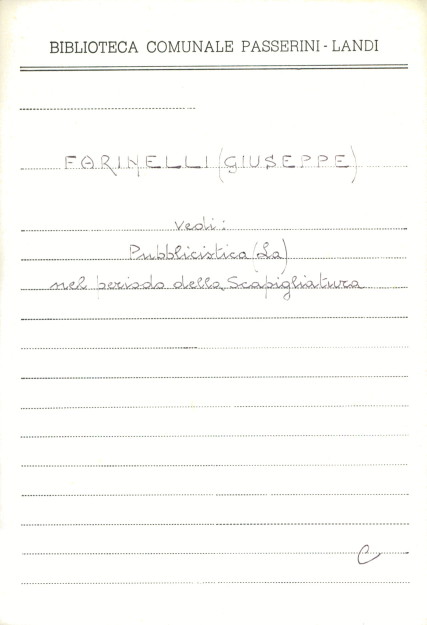 BIBLIOTECA COMUNALE PASSERINI-LANDI
FARINELLI (GIUSEPPE)
vedi:
Pubblicistica (La)
nel periodo della Scapigliatura
C